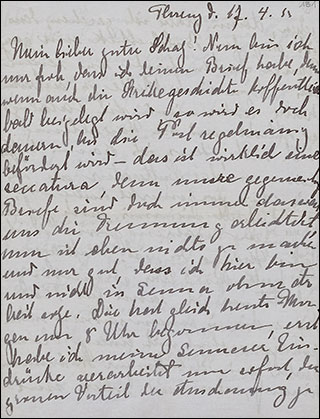 Florenz d. 17. 4.
Mein lieber guter Schatz! Nun bin ich
nur froh, dass ich deinen Brief habe, denn
wenn auch die Streikgeschichte hoffentlich
bald beigelegt wird, so wird es doch
dauern bis die Post regelmässig
befördert wird – das ist wirklich eine
seccatura, denn unsre gegenseit
Briefe sind doch immer dasjenige
uns die Trennung erleichtert
nun ist eben nichts zu machen
und nur gut, dass ich hier bin
und nicht in Siena ohne Ar
beit sitze. Die hat gleich heute Mor
gen um 8 Uhr begonnen, erst
habe ich meine Sieneser Ein
drücke verarbeitet nur sofort, der
grossen Vorteil der Anschauung zu